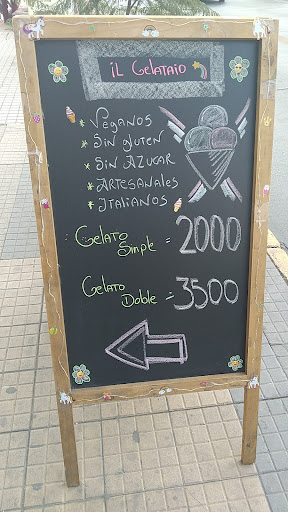 iL GelatAio
* Veganos
* Sin gluten
* Sin Azucar
* Artesanales
* Italianos
Gelato Simple = 2000
Gelato Doble = 3500